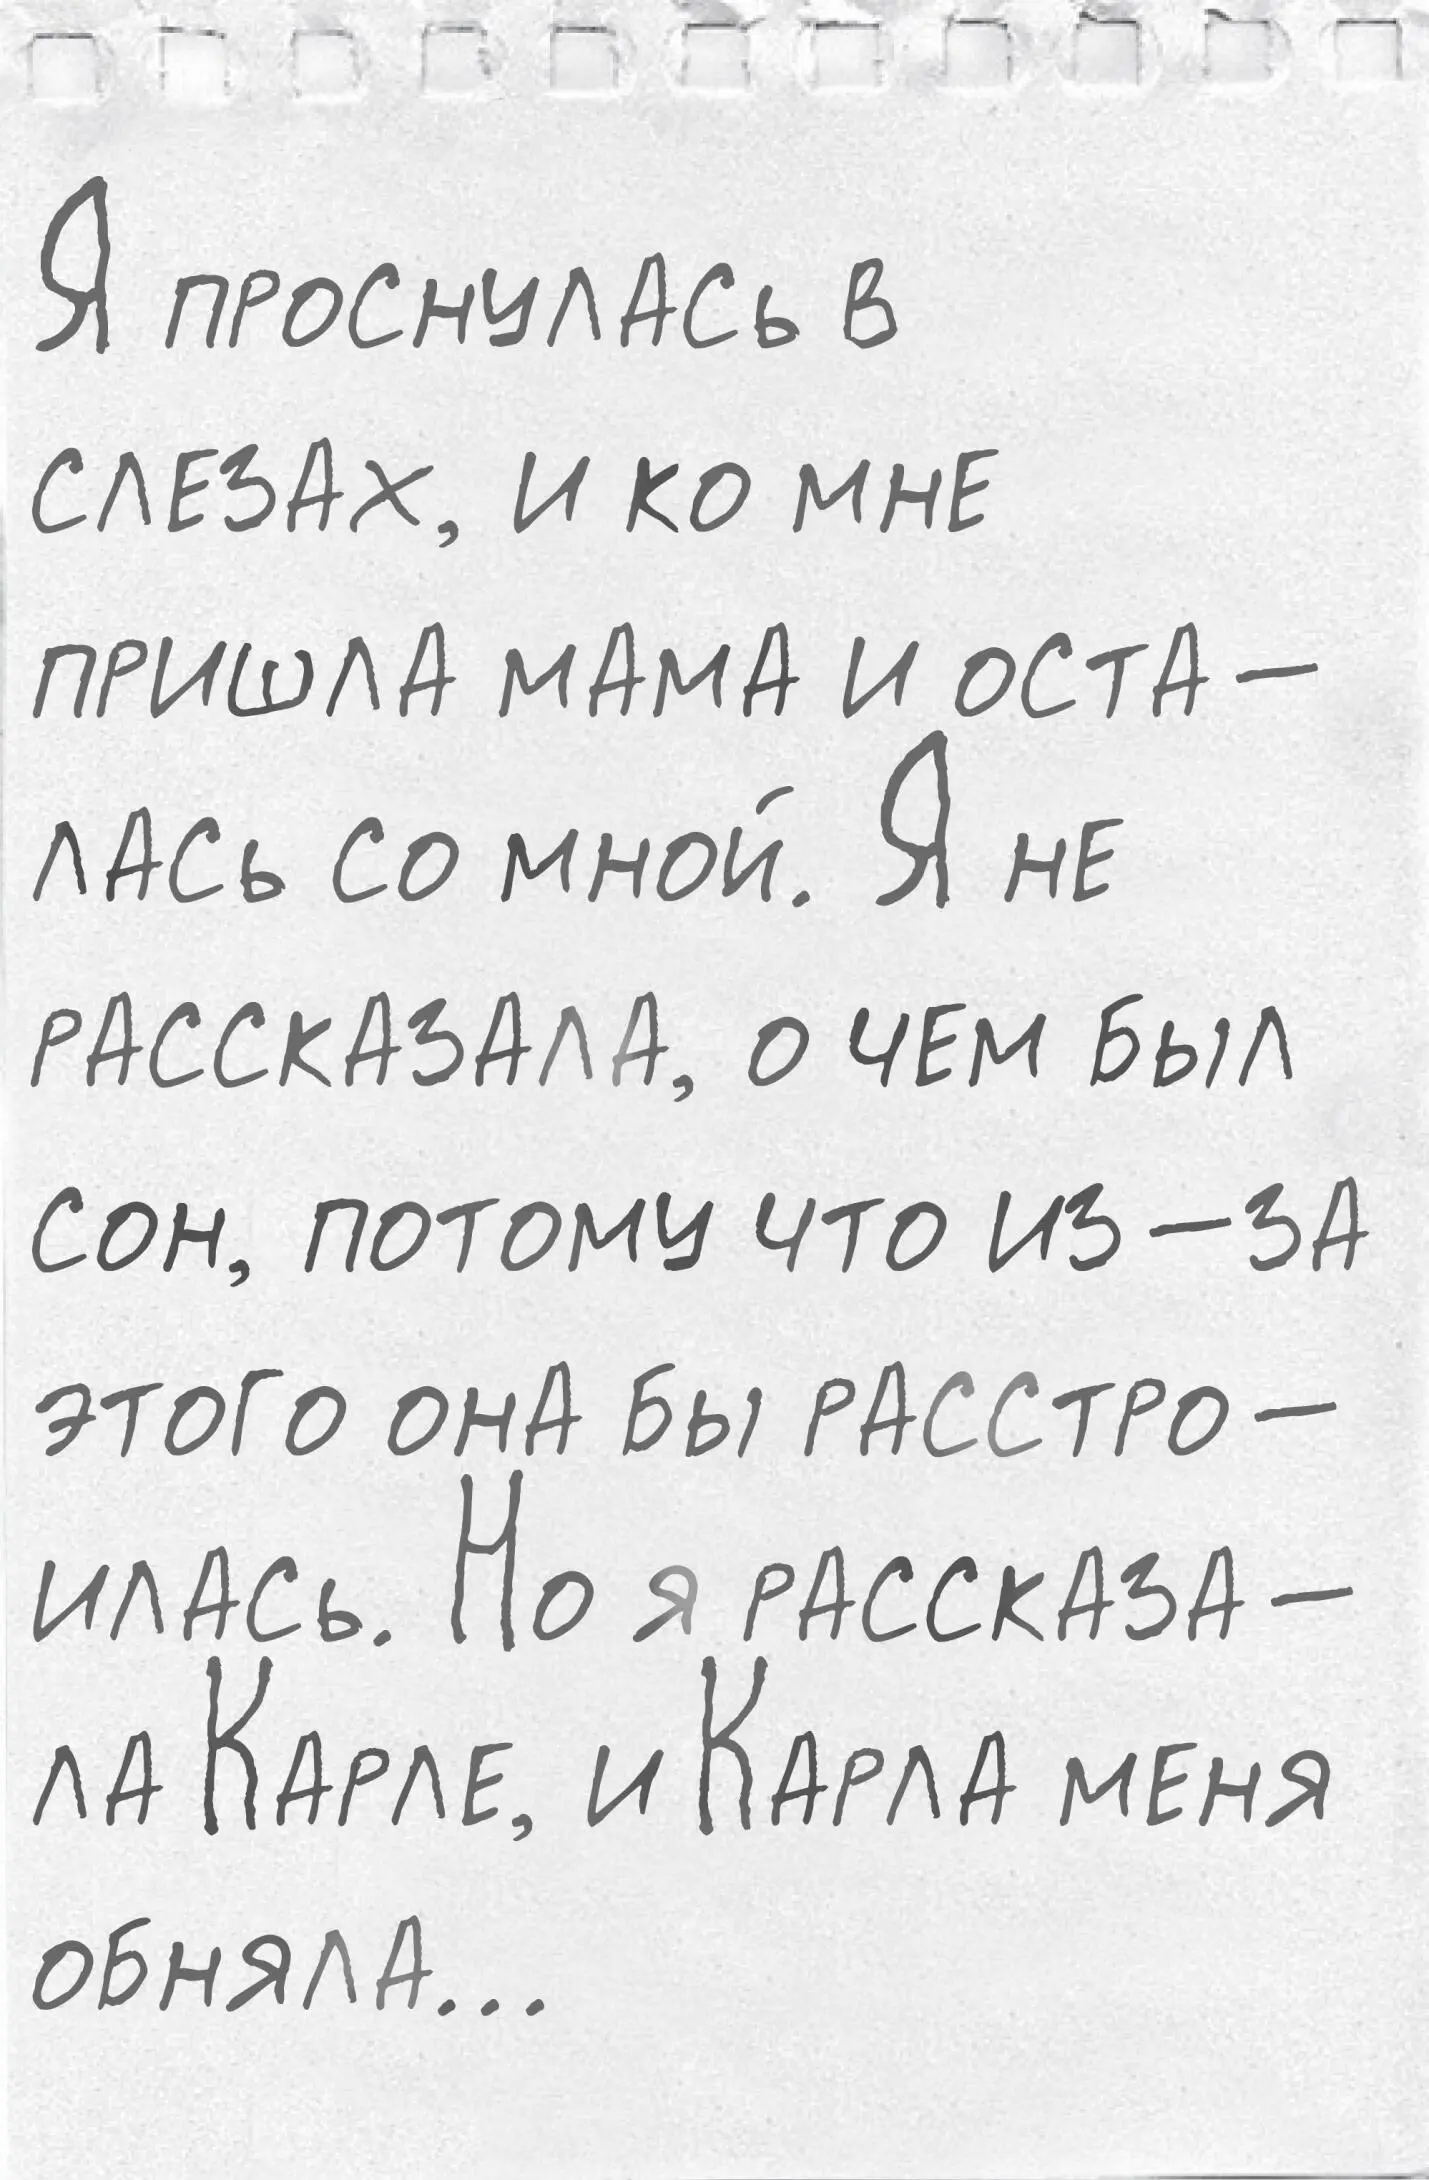 Я проснулась в
слезах, и ко мне
пришла мама и оста-
лась со мной. Я не
рассказала, о чем был
сон, потому что из-за
этого она бы расстро-
илась. Но я рассказа-
ла Карле, и Карла меня
обняла...